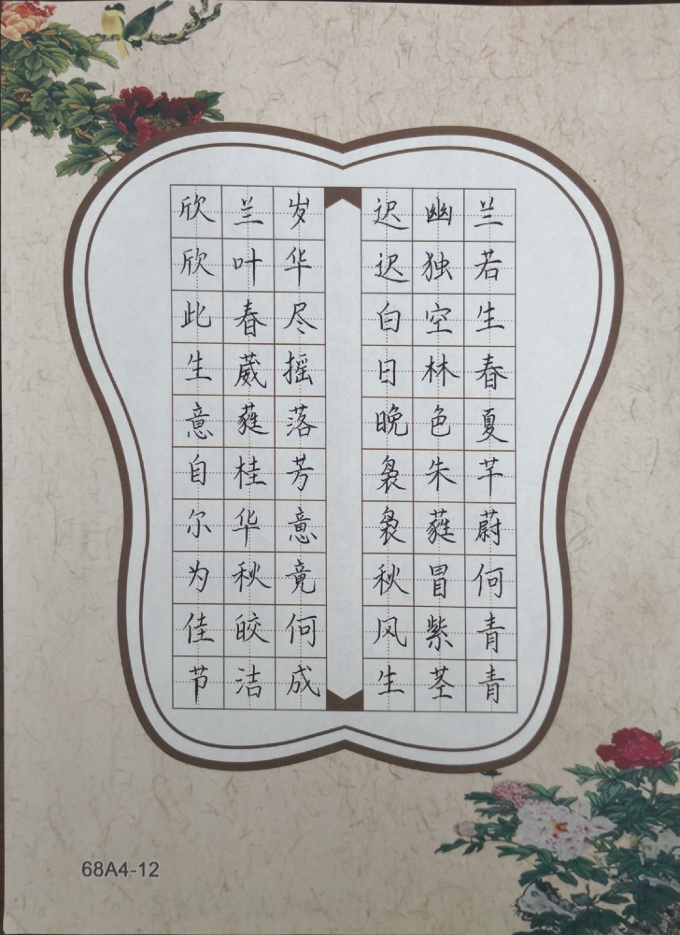 兰若生春夏芊蔚何青青
幽独空林色朱蕤冒紫茎
迟迟白日晚袅袅秋风生
岁华尽摇落芳意竟何成
兰叶春葳蕤桂华秋皎洁
欣欣此生意自尔为佳节
68A4-12